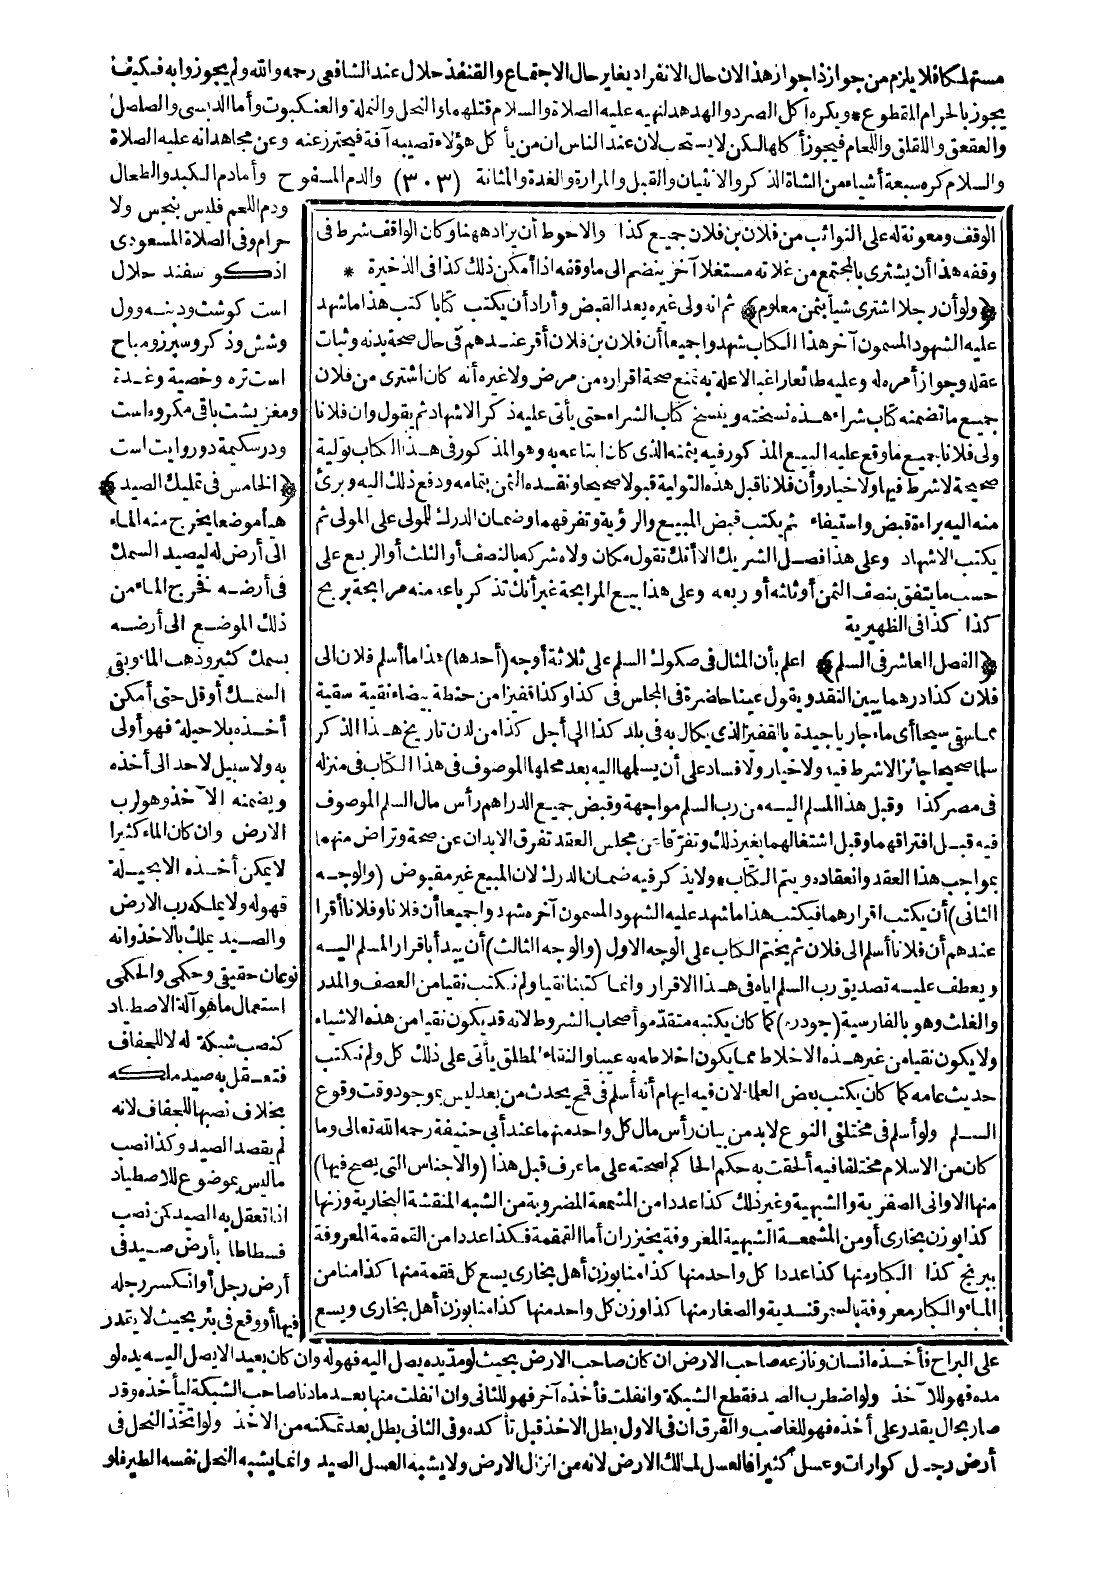 مستهلكا فلا يلزم من جواز ذا جواز هذا لان حال الانفراد يغاير حال الاجتماع والقنفذ حلال عند الشافعى رحمه والله ولم يجوزوا به فكيف
يجوز بالحرام المقطوع * ويكره أكل الصرد والهدهد لنهيه عليه الصلاة والسلام قتلهما والنحل والنملة والعنكبوت وأما الدبسى والصلصل
والعقعق واللقلق واللحام فيجوز أكلها لكن لا يستحب لان عند الناس ان من يأكل هؤلاء تصيبه آفة فيحترز عنه وعن مجاهد انه عليه الصلاة
والسلام كره سبعة أشياء من الشاة الذكر والانثيان والقبل والمرارة والغدة والمثانة (٣٠٣) والدم المسفوح وأما دم الكبد والطحال
ودم اللحم فليس بنجس ولا
حرام وفى الصلاة المسعودى
اذكو سفند حلال
است كوشت ودنبه وول
وشش وذكر وسبرز ومباح
است تره وخصية وغدة
ومغز پشت باقى مكروه است
ودر سكيمة دو روايت است
﴿الخامس فى تمليك الصيد﴾
هيأ موضعا يخرج منه الماء
الى أرض له ليصيد السمك
فى أرضه فخرج الماء من
ذلك الموضع الى أرضه
بسمك كثير وذهب الماء وبقى
السمك أو قل حتى أمكن
أخذه بلا حيلة فهو أولى
به ولا سبيل لاحد الى أخذه
ويضمنه الآخذ وهو لرب
الارض وان كان الماء كثيرا
لا يمكن أخذه الا بحيلة
فهو له ولا يملكه رب الارض
والصيد يملك بالاخذ وانه
نوعان حقيقى وحكمى والحكمى
استعمال ما هو آلة الاصطياد
كنصب شبكة له لا للجفاف
فتعقل به صيد ملكه
بخلاف نصبها للجفاف لانه
لم يقصد الصيد وكذا نصب
ما ليس بموضوع للاصطياد
اذا تعقل به الصيد كمن نصب
فسطاطا بأرض صيد فى
أرض رجل أو انكسر رجله
فيها أو وقع فى بئر بحيث لا يقدر
الوقف ومعونة له على النوائب من فلان بن فلان جميع كذا والاحوط أن يزاد ههنا وكان الواقف شرط فى
وقفه هذا أن يشترى بالمجتمع من غلاته مستغلا آخر ينضم الى ما وقفه اذا أمكن ذلك كذا فى الذخيرة *
﴿ولو أن رجلا اشترى شيأ بثمن معلوم﴾ ثم انه ولى غيره بعد القبض وأراد أن يكتب كتابا كتب هذا ما شهد
عليه الشهود المسمون آخر هذا الكتاب شهدوا جميعا أن فلان بن فلان أقر عندهم فى حال صحة بدنه وثبات
عقله وجواز أمره له وعليه طائعا راغبا لا علة به تمنع صحة اقراره من مرض ولا غيره أنه كان اشترى من فلان
جميع ما تضمنه كتاب شراء هذه نسخته وينسخ كتاب الشراء حتى يأتى عليه ذكر الاشهاد ثم يقول وان فلانا
ولى فلانا بجميع ما وقع عليه البيع المذكور فيه بثمنه الذى كان ابتاعه به وهو المذكور فى هذا الكتاب تولية
صحيحة لا شرط فيها ولا خيار وأن فلانا قبل هذه التولية قبولا صحيحا ونقده الثمن بتمامه ودفع ذلك اليه وبرئ
منه اليه براءة قبض واستيفاء ثم يكتب قبض المبيع والرؤية وتفرقهما وضمان الدرك للمولى على المولى ثم
يكتب الاشهاد وعلى هذا فصل الشريك الا أنك تقول مكان ولاه شركه بالنصف أو الثلث أو الربع على
حسب ما يتفق بنصف الثمن أو ثلثه أو ربعه وعلى هذا بيع المرابحة غير أنك تذكر باعه منه مرابحة بربح
كذا كذا فى الظهيرية
﴿الفصل العاشر فى السلم﴾ اعلم بأن المثال فى صكوك السلم على ثلاثة أوجه (أحدها) هذا ما أسلم فلان الى
فلان كذا درهما يبين النقد ويقول عينا حاضرة فى المجلس فى كذا وكذا قفيزا من حنطة بيضاء نقية سقية
مما سقى سيحا أى ماء جاريا جيدة بالقفيز الذى يكال به فى بلد كذا الى أجل كذا من لدن تاريخ هذا الذكر
سلما صحيحا جائزا لا شرط فيه ولا خيار ولا فساد على أن يسلمها اليه بعد محلها الموصوف فى هذا الكتاب فى منزله
فى مصر كذا وقبل هذا المسلم اليه من رب السلم مواجهة وقبض جميع الدراهم رأس مال السلم الموصوف
فيه قبل افتراقهما وقبل اشتغالهما بغير ذلك وتفرقا عن مجلس العقد تفرق الابدان عن صحة وتراض منهما
بمواجب هذا العقد وانعقاده ويتم الكتاب * ولا يذكر فيه ضمان الدرك لان المبيع غير مقبوض (والوجه
الثانى) أن يكتب اقرارهما فيكتب هذا ما شهد عليه الشهود المسمون آخره شهدوا جميعا أن فلانا وفلانا أقرا
عندهم أن فلانا أسلم الى فلان ثم يختم الكتاب على الوجه الاول (والوجه الثالث) أن يبدأ باقرار المسلم اليه
ويعطف عليه تصديق رب السلم اياه فى هذا الاقرار وانما كتبنا نقيا ولم نكتب نقيا من العصف والمدر
والغلث وهو بالفارسية (جودره) كما كان يكتبه متقدمو أصحاب الشروط لانه قد يكون نقيا من هذه الاشياء
ولا يكون نقيا من غير هذه الاخلاط مما يكون اخلاطه به عيبا والنقاء المطلق يأتى على ذلك كل ولم نكتب
حديث عامه كما كان يكتب بعض العلماء لان فيه ايهام أنه أسلم فى قمح يحدث من بعد ليس بموجود وقت وقوع
السلم ولو أسلم فى مختلفى النوع لا بد من بيان رأس مال كل واحد منهما عند أبى حنيفة رحمه الله تعالى وما
كان من الاسلام مختلفا فيه ألحقت به حكم الحاكم لصحته على ما عرف قبل هذا (والاجناس التى يصح فيها)
منها الاوانى الصفرية والشبهية وغير ذلك كذا عددا من المشمعة المضروبة من الشبه المنقشة البخارية وزنها
كذا بوزن بخارى أو من المشمعة الشبهية المعروفة بخيزران أما القمقمة فكذا عددا من القمقمة المعروفة
ببرنج كذا الكبار منها كذا عددا كل واحد منها كذا منا بوزن أهل بخارى يسع كل قمقمة منها كذا منا من
الماء والكبار معروفة بالسمرقندية والصغار منها كذا وزن كل واحد منها كذا منا بوزن أهل بخارى ويسع
على البراح فأخذه انسان ونازعه صاحب الارض ان كان صاحب الارض بحيث لو مد يده يصل اليه فهو له وان كان بعيد الا يصل اليه يده لو
مده فهو للآخذ ولو اضطرب الصيد فقطع الشبكة وانفلت فأخذه آخر فهو للثانى وان انفلت منها بعد ما دنا صاحب الشبكة ليأخذه وقد
صار بحال يقدر على أخذه فهو للغاصب والفرق ان فى الاول بطل الاخذ قبل تأكده وفى الثانى بطل بعد تمكنه من الاخذ ولو اتخذ النحل فى
أرض رجل كوارات وعسل كثيرا فالعسل لمالك الارض لانه من انزال الارض ولا يشبه العسل الصيد وانما يشبه النحل نفسه الطير فلو